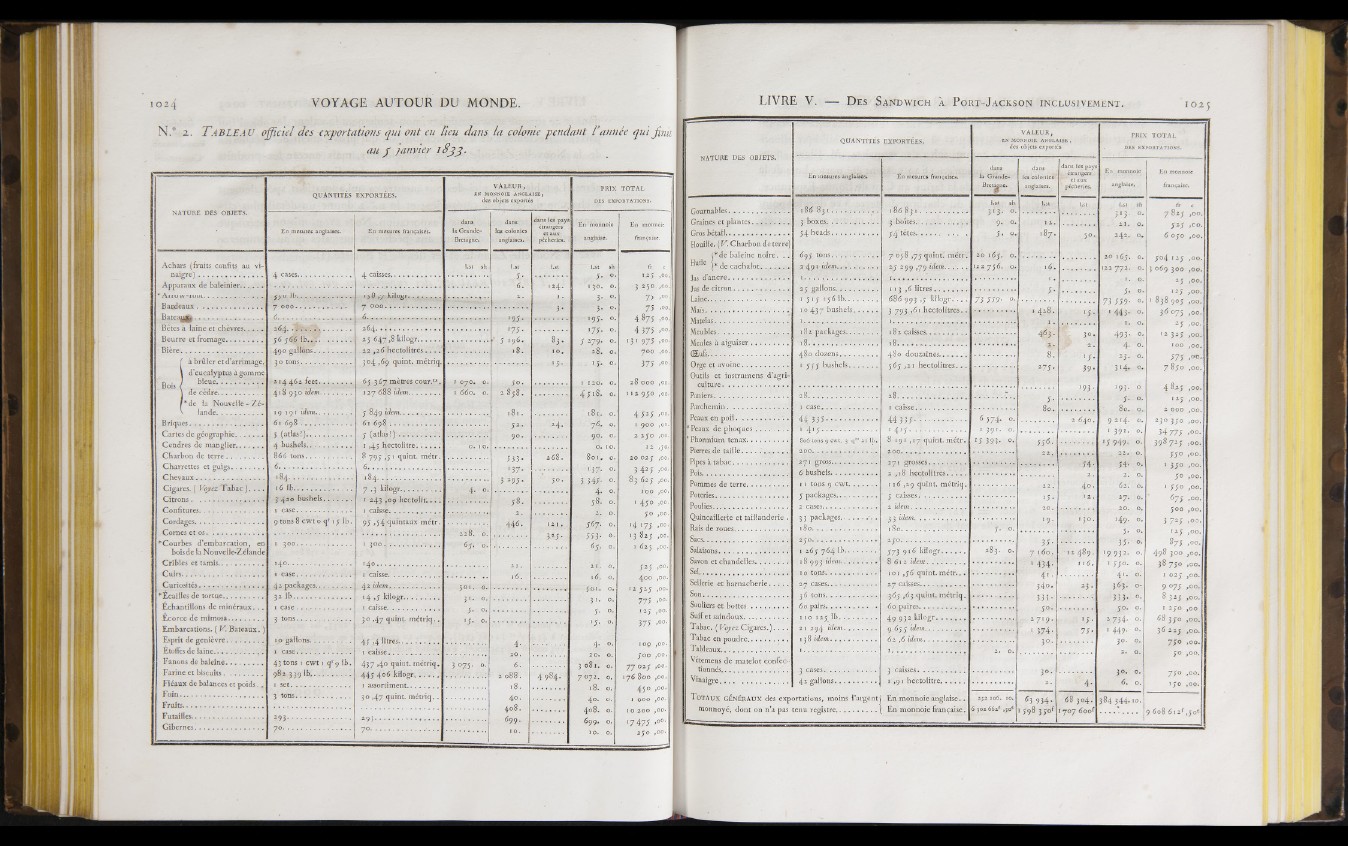 1024 VOYAGE AUTOUR DU MONDE.
N.° 2. TABLEAU officiel des exportations qui ont eu lieu dans la colonie pendant l'année qui finit
au 5 janvier 1833.
NATURE DES OBJETS.
QUANTITÉS EXPORTÉES.
VALEUR, EN MONNOIE ANGLAISE, des objets exportés
PRIX TOTAL DES EXPORTATIONS.
En mesures anglaises. En mesures françaises. dans la Grande-Bretagne. dans les colonies anglaises. dans les pays étrangers et aux pêcheries. En monnoie anglaise. En monnoie française.
Achars (fruits confits au vi-
naigre) 4 cases. 4 caisses. 5. 5. 0. 125 ,00.
Apparaux de baleinier 6. 124. 130. 0. 3 250 ,00.
Bardeaux 7 000. 7 000. 3. 3. 0. 75 ,00.
Bateaux 6. 6. 195. 195. 0. 4 875 ,00.
Bêtes à laine et chèvres 264. 264. 175. 175. 0. 4 375 ,00.
Beurre et fromage 56 566 lb. 25 647 ,8 kilogr. 5 196. 83. 5 279. 0. 131 975 ,00.
Bière 490 gallons. 22 ,26 hectolitres. 18. 10. 28. 0. 700 ,00.
Bois
à brûler et d'arrimage. 30 tons. 304 ,69 quint. métriq. 15. 15. 0. 375 ,00.
d'eucalyptus à gomme
bleue 214 462 feet. 65 367 mètres cour. 1 070. 0. 50. 1 120. 0. 28 000 ,00.
de cèdre 418 930 idem. 127 688 idem. 1 660. 0. 2 858. 4 518. 0. 112 950 ,00.
*de la Nouvelle-Zé-
lande 19 191 idem. 5 849 idem. 181. 181. 0. 4 525 ,00.
Briques 61 698. 61 698. 52. 24. 76. 0. 1 900 ,00.
Cartes de géographie 5 (atlas!). 5 (atlas!). 90. 90. 0. 2 250 ,00.
Cendres de manglier 4 bushels. 1 ,45 hectolitre. 0. 10. 0. 10. 12 ,50.
Charbon de terre 866 tons. 8 795 ,51 quint. métr. 533. 268. 801. 0. 20 025 ,00.
Charrettes et guigs 6. 6. 137. 137. 0. 3 425 ,00.
Chevaux 184. 184. 3 295. 50. 3 345. 0. 83 625 ,00.
Cigares. (Voyez Tabac) 16 lb. 7 ,3 kilogr. 4. 0. 4. 0. 100 ,00.
Citrons 3 420 bushels. 1 243 ,09 hectolit. 58. 58. 0. 1 450 ,00.
Confitures 1 case. 1 caisse. 2. 2. 0. 50 ,00.
Cordages 9 tons 8 cwt 0 q 15 lb. 95 ,54 quintaux métr. 446. 121. 567. 0. 14 175 ,00.
Cornes et os 228. 0. 325. 553. 0. 13 825 ,00.
*Courbes d'embarcation, en
bois de la Nouvelle-Zélande 1 300. 1 300. 65. 0. 65. 0. 1 625 ,00.
Cribles et tamis 140. 140. 21. 21. 0. 525 ,00.
Cuirs 1 case. 1 caisse. 16. 16. 0. 400 ,00.
Curiosités 42 packages. 42 idem. 501. 0. 501. 0. 12 525 ,00.
*Écailles de tortue 32 lb. 14 ,5 kilogr. 31. 0. 31. 0. 775 ,00.
Échantillons de minéraux 1 case. 1 caisse. 5. 0. 5. 0. 125 ,00.
Écorce de mimosa 3 tons. 30 ,47 quint. métriq. 15. 0. 15. 0. 375 ,00.
Embarcations. (V. Bateaux.)
Esprit de genièvre 10 gallons. 45 ,4 litres. 4. 4. 0. 100 ,00.
Étoffes de laine 1 case. 1 caisse. 20. 20. 0. 500 ,00.
Fanons de baleine 43 tons 1 cwt 1 q 9 lb. 437 ,40 quint. métriq. 3 075. 0. 6. 3 081. 0. 77 025 ,00.
Farine et biscuits 982 339 lb. 445 406 kilogr. 2 088. 4 984. 7 072. 0. 176 800 ,00.
Fléaux de balances et poids 1 set. 1 assortiment. 18. 18. 0. 450 ,00.
Foin 3 tons. 30 ,47 quint. métriq. 40. 40. 0. 1 000 ,00.
Fruits 408. 408. 0. 10 200 ,00.
Futailles 293. 293. 699. 699. 0. 17 475 ,00.
Gibernes 70. 70. 10. 10. 0. 250 ,00.
LIVRE V. — DES SANDWICH À PORT-JACKSON INCLUSIVEMENT. 1025
NATURE DES OBJETS.
QUANTITÉS EXPORTÉES.
VALEUR, EN MONNOIE ANGLAISE, des objets exportés
PRIX TOTAL DES EXPORTATIONS.
En mesures anglaises. En mesures françaises. dans la Grande-Bretagne. dans les colonies anglaises. dans les pays étrangers et aux pêcheries. En monnoie anglaise. En monnoie française.
Gournables 186 831. 186 831. 313. 0. 313. 0. 7 825 ,00.
Graines et plantes 3 boxes. 3 boîtes. 9. 0. 12. 21. 0. 525 ,00.
Gros bétail 54 heads. 54 têtes. 5. 0. 187. 50. 242. 0. 6 050 ,00.
Houille. (V. Charbon de terre)
Huile
*de baleine noire 695 tons. 7 058 ,75 quint. métr. 20 165. 0. 20 165. 0. 504 125 ,00.
*de cachalot 2 491 idem. 25 299 ,79 idem. 122 756. 0. 16. 122 772. 0. 3 069 300 ,00.
Jas d'ancre 1. 1. 1. 1. 0. 25 ,00.
Jus de citron 25 gallons. 113 ,6 litres. 5. 5. 0. 125 ,00.
Laine 1 515 156 lb. 686 993 ,5 kilogr. 73 559. 0. 73 559. 0. 1 838 905 ,00.
Maïs 10 437 bushels. 3 793 ,61 hectolitres. 1 428. 15. 1 443. 0. 36 075 ,00.
Matelas 1. 1. 1. 1. 0. 25 ,00.
Meubles 182 packages. 182 caisses. 463. 30. 493. 0. 12 325 ,00.
Meules à aiguiser 18. 18. 2. 2. 4. 0. 100 ,00.
Œufs 480 dozens. 480 douzaines. 8. 15. 23. 0. 575 ,00.
Orge et avoine 1 553 bushels. 565 ,21 hectolitres. 275. 39. 314. 0. 7 850 ,00.
Outils et instrumens d'agri-
culture 193. 193. 0 4 825 ,00.
Paniers 28. 28. 5. 5. 0. 125 ,00.
Parchemin 1 case. 1 caisse. 80. 80. 0. 2 000 ,00.
Peaux en poil 44 335. 44 335. 6 574. 0. 2 640. 9 214. 0. 230 350 ,00.
*Peaux de phoques 1 415. 1 415. 1 391. 0. 1 391. 0. 34 775 ,00.
*Phormium tenax 15 393. 0. 556. 15 949. 0. 398 725 ,00.
Pierres de taille 200. 200. 22. 22. 0. 550 ,00.
Pipes à tabac 271 gross. 271 grosses. 54. 54. 0. 1 350 ,00.
Pois 6 bushels. 2 ,18 hectolitres. 2. 2. 0. 50 ,00.
Pommes de terre 11 tons 9 cwt. 116 ,29 quint. métriq. 22. 40. 62. 0. 1 550 ,00.
Poteries 5 packages. 5 caisses. 15. 12. 27. 0. 675 ,00.
Poulies 2 cases. 2 idem. 20. 20. 0. 500 ,00.
Quincaillerie et taillanderie 53 packages. 53 idem. 19. 130. 149. 0. 3 725 ,00.
Rais de roues 180. 180. 5. 0. 5. 0. 125 ,00.
Sacs 250. 250. 35. 35. 0. 875 ,00.
Salaisons 1 265 764 lb. 573 916 kilogr. 283. 0. 7 160. 12 489. 19 932. 0. 498 300 ,00.
Savon et chandelles 18 993 idem. 8 612 idem. 1 434. 116. 1 550. 0. 38 750 ,00.
Sel 10 tons. 101 ,56 quint. métr. 41. 41. 0. 1 025 ,00.
Sellerie et harnacherie 27 cases. 27 caisses. 340. 23. 363. 0. 9 075 ,00.
Son 36 tons. 365 ,63 quint. métriq. 333. 333. 0. 8 325 ,00.
Souliers et bottes 60 pairs. 60 paires. 50. 50. 0. 1 250 ,00.
Suif et saindoux 110 125 lb. 49 932 kilogr. 2 719. 15. 2 734. 0. 68 350 ,00.
Tabac. (Voyez Cigares.) 21 294 idem. 9 655 idem. 1 374. 75. 1 449. 0. 36 225 ,00.
Tabac en poudre 138 idem. 62 ,6 idem. 30. 30. 0. 750 ,00.
Tableaux 1. 1. 2. 0. 2. 0. 50 ,00.
Vêtemens de matelot confec-
tionnés 3 cases. 3 caisses. 30. 30. 0. 750 ,00.
Vinaigre 42 gallons. 1 ,91 hectolitre. 2. 4. 6. 0. 150 ,00.
TOTAUX GÉNÉRAUX des exportations, moins l'argent En monnoie anglaise. 252 106. 10. 63 934. 68 304. 384 344. 10.
monnoyé, dont on n'a pas tenu registre. En monnoie française. 6 302 662f ,50c 1 598 350f 1 707 600f 9 608 612f ,50c